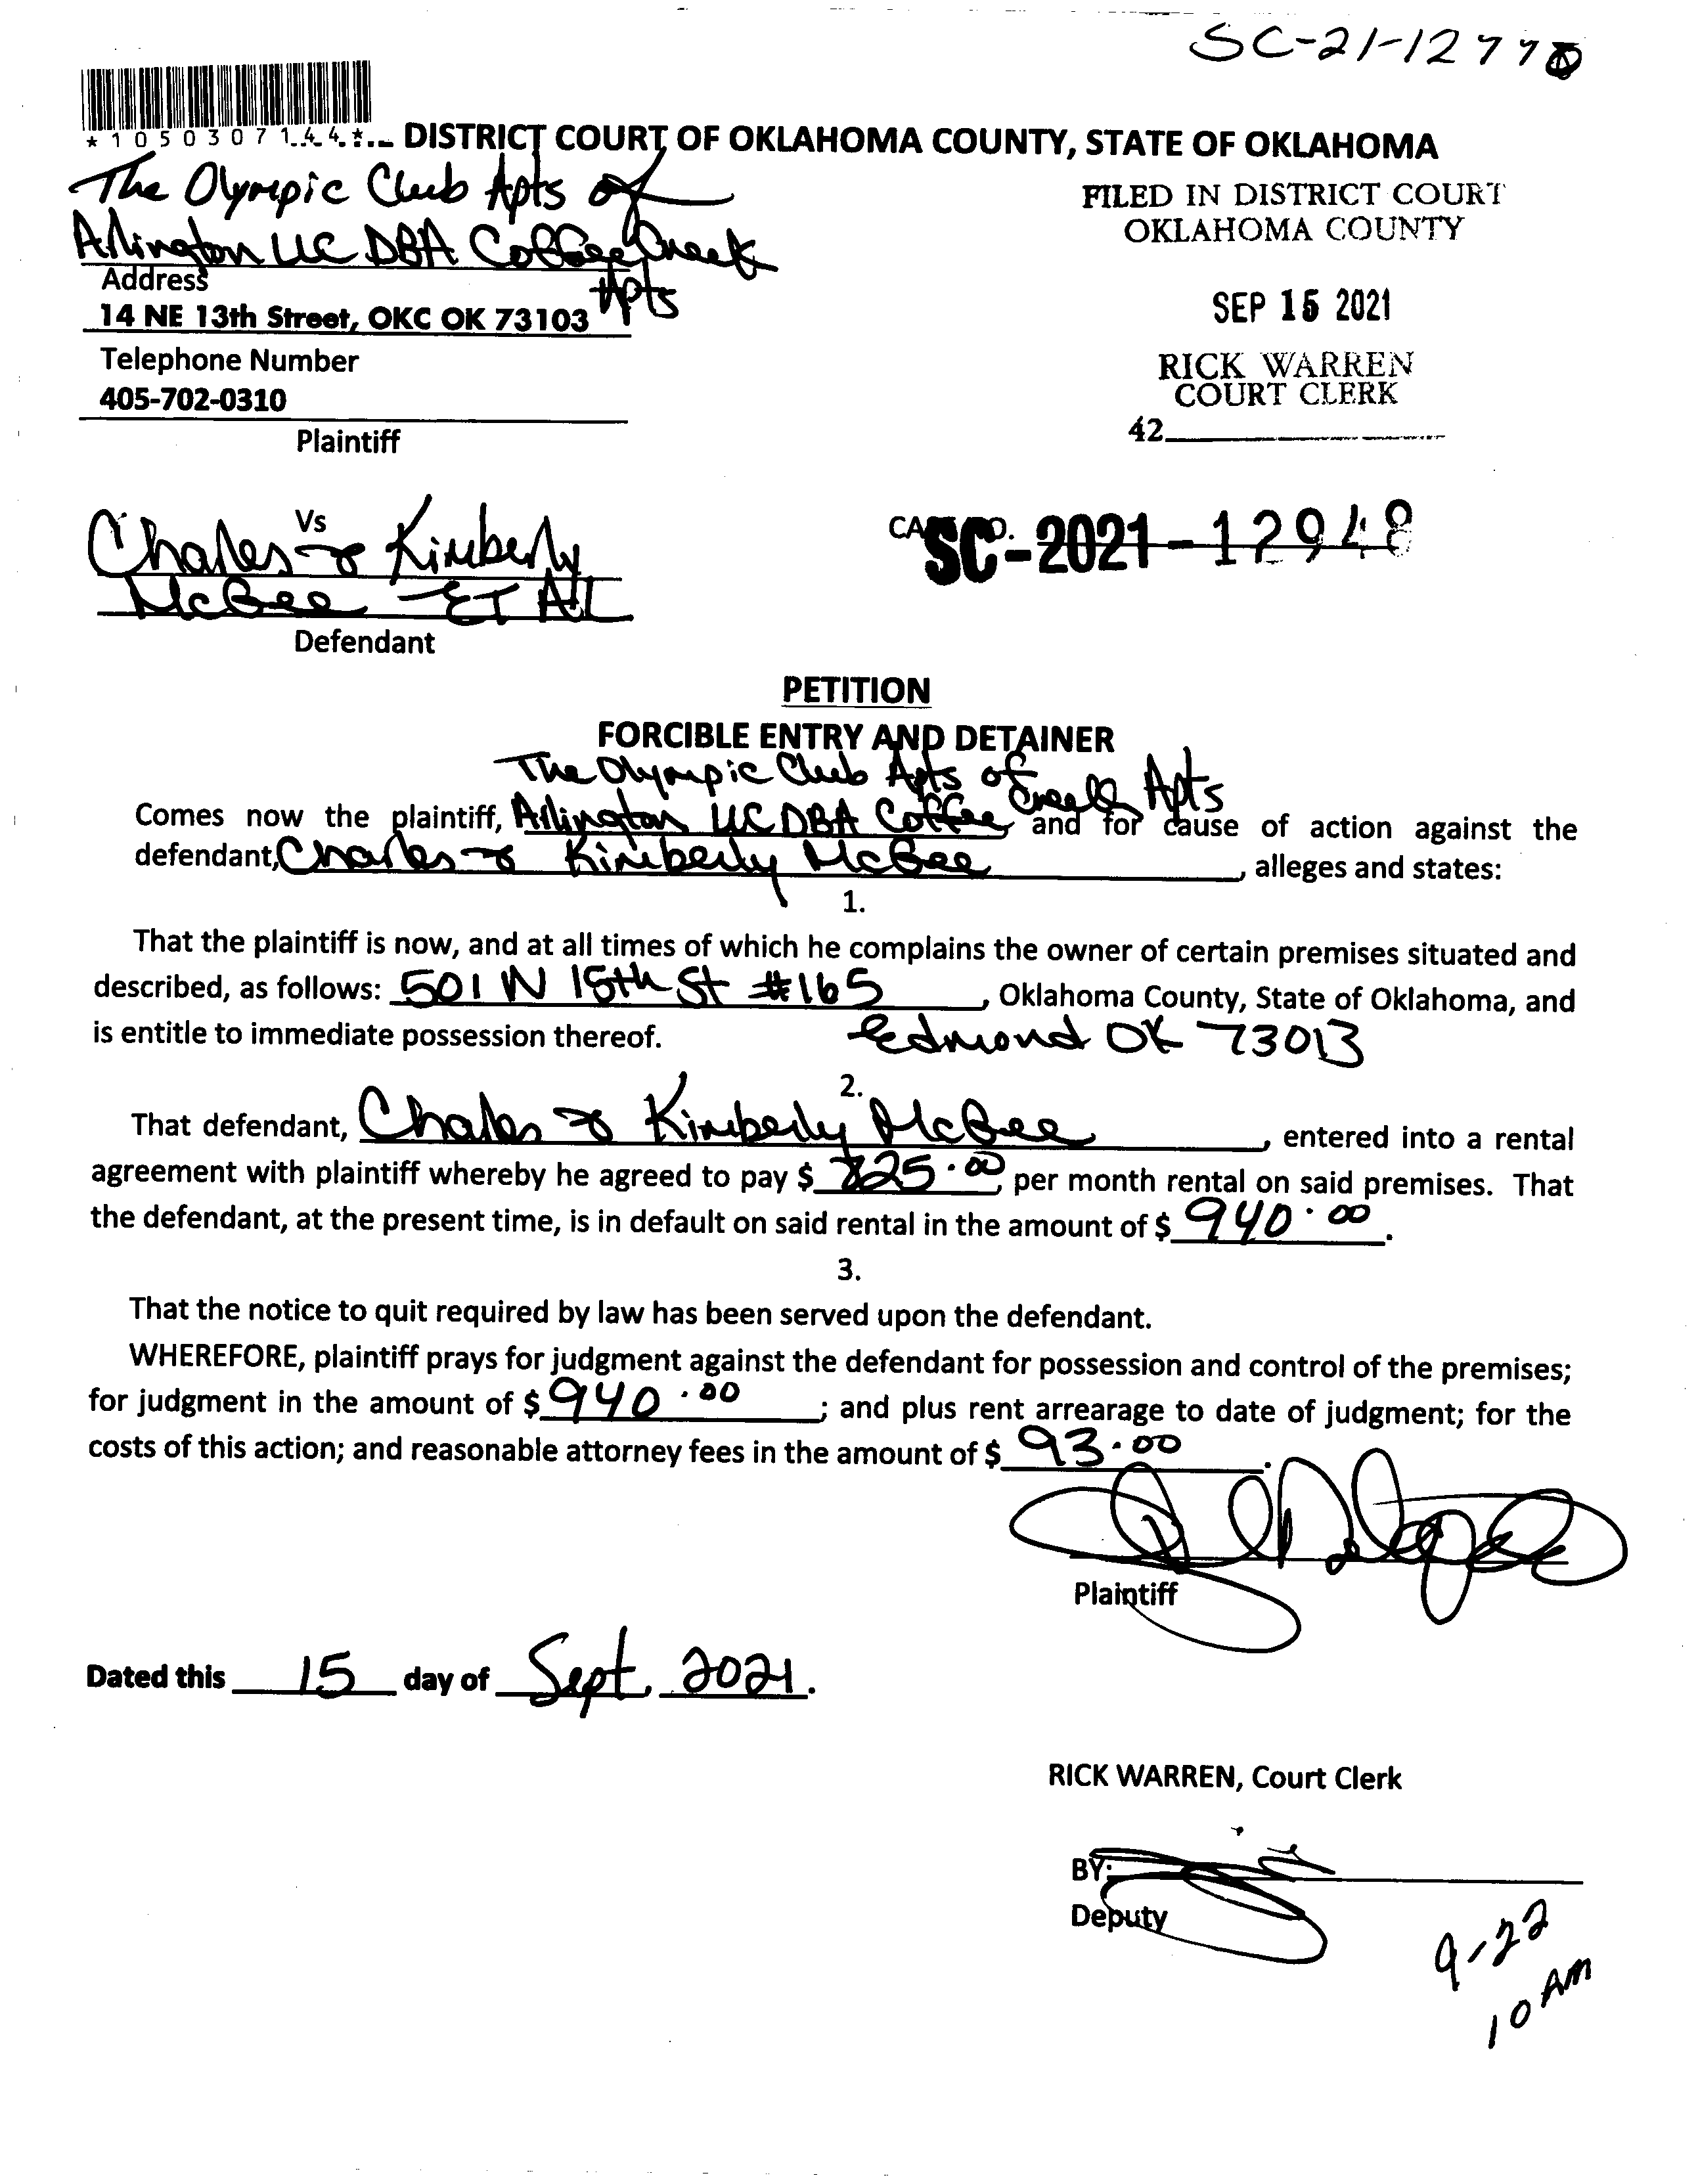 SC-21-1277
*1050307144*
DISTRICT COURT OF OKLAHOMA COUNTY, STATE OF OKLAHOMA
The Olympic Club Apts of
Arlington LLC DBA Coffee Creek
Apts
Address
14 NE 13th Street, OKC OK 73103
Telephone Number
405-702-0310
Plaintiff
FILED IN DISTRICT COURT
OKLAHOMA COUNTY
SEP 15 2021
RICK WARREN
COURT CLERK
42
Vs
Charles & Kimberly
McBee ET AL
Defendant
SC-2021-12948
PETITION
FORCIBLE ENTRY AND DETAINER
The Olympic Club Apts of
Comes now the plaintiff, Arlington LLC DBA Coffee Creek Apts and for cause of action against the
defendant, Charles & Kimberly McBee, alleges and states:
1.
That the plaintiff is now, and at all times of which he complains the owner of certain premises situated and
described, as follows: 501 W 15th St #165, Oklahoma County, State of Oklahoma, and
is entitle to immediate possession thereof. Edmond OK 73013
2.
That defendant, Charles & Kimberly McBee, entered into a rental
agreement with plaintiff whereby he agreed to pay $ 825.00, per month rental on said premises. That
the defendant, at the present time, is in default on said rental in the amount of $ 940.00.
3.
That the notice to quit required by law has been served upon the defendant.
WHEREFORE, plaintiff prays for judgment against the defendant for possession and control of the premises;
for judgment in the amount of $ 940.00; and plus rent arrearage to date of judgment; for the
costs of this action; and reasonable attorney fees in the amount of $ 93.00.
Plaintiff
Dated this 15 day of Sept, 2021.
RICK WARREN, Court Clerk
BY:
Deputy
9-22
10 AM